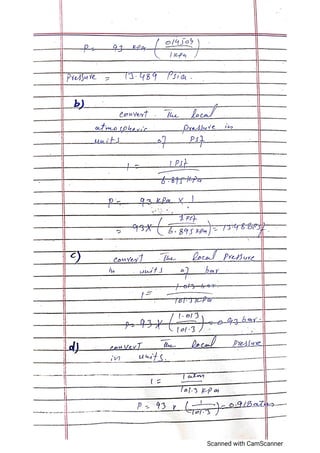 P = 93 kPa ( 0.14504 / 1 kPa )
Pressure = 13.489 Psia.
b)
convert. The local
atmospheric pressure in
units of PSI
1 = 1 PSI / 6.895 kPa
P = 93 kPa × 1
= 93 × ( 1 PSI / 6.895 kPa ) =
c)
convert The local Pressure
in units of bar
1 = 1.013 bar / 101.3 kPa
P = 93 × ( 1.013 / 101.3 ) = 0.93 bar.
d)
convert The local pressure
in units.
1 = 1 atm / 101.3 kPa
P = 93 × ( 1 / 101.3 ) = 0.918 atm
Scanned with CamScanner